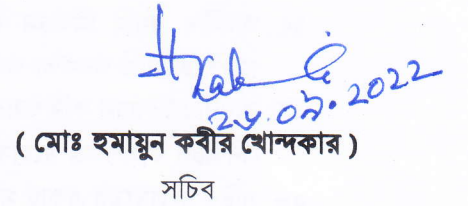 ২৮.০৯.২০২২
( মোঃ হুমায়ুন কবীর খোন্দকার )
সচিব